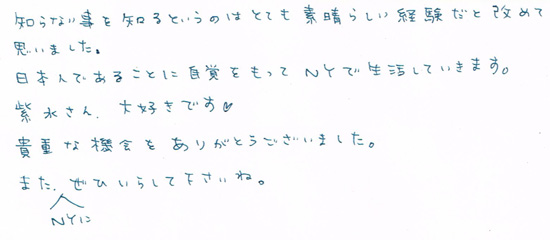 知らない事を知るというのはとても素晴らしい経験だと改めて
思いました。
日本人であることに自覚をもってNYで生活していきます。
紫水さん、大好きです♡
貴重な機会をありがとうございました。
また、ぜひいらして下さいね。
NYに